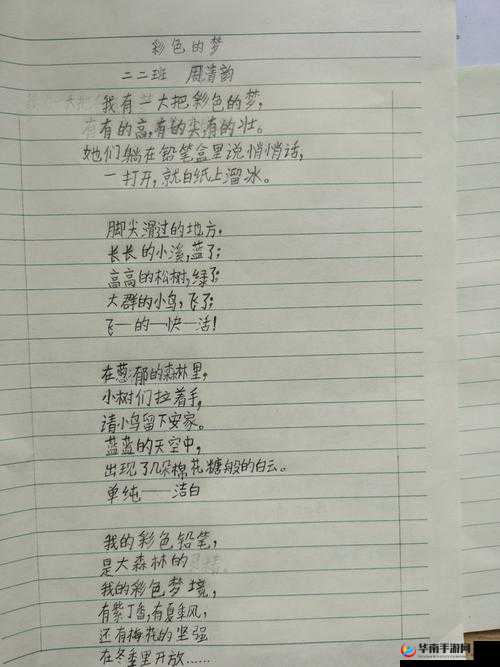 彩色的梦
二二班 周清韵
我有一大把彩色的梦,
有的高,有的尖,有的壮。
她们躺在铅笔盒里说悄悄话,
一打开,就白纸上溜冰。
脚尖滑过的地方;
长长的小溪,蓝了;
高高的松树,绿了;
大群的小鸟,飞了;
飞一的一快一活!
在葱郁的森林里,
小树们拉着手,
请小鸟留下安家。
蓝蓝的天空中,
出现了几朵棉花糖般的白云。
单纯——洁白
我的彩色铅笔,
是大森林的
我的彩色梦境,
有紫丁香,有夏季风,
还有梅花的坚强
在冬季里开放……
华南手游网